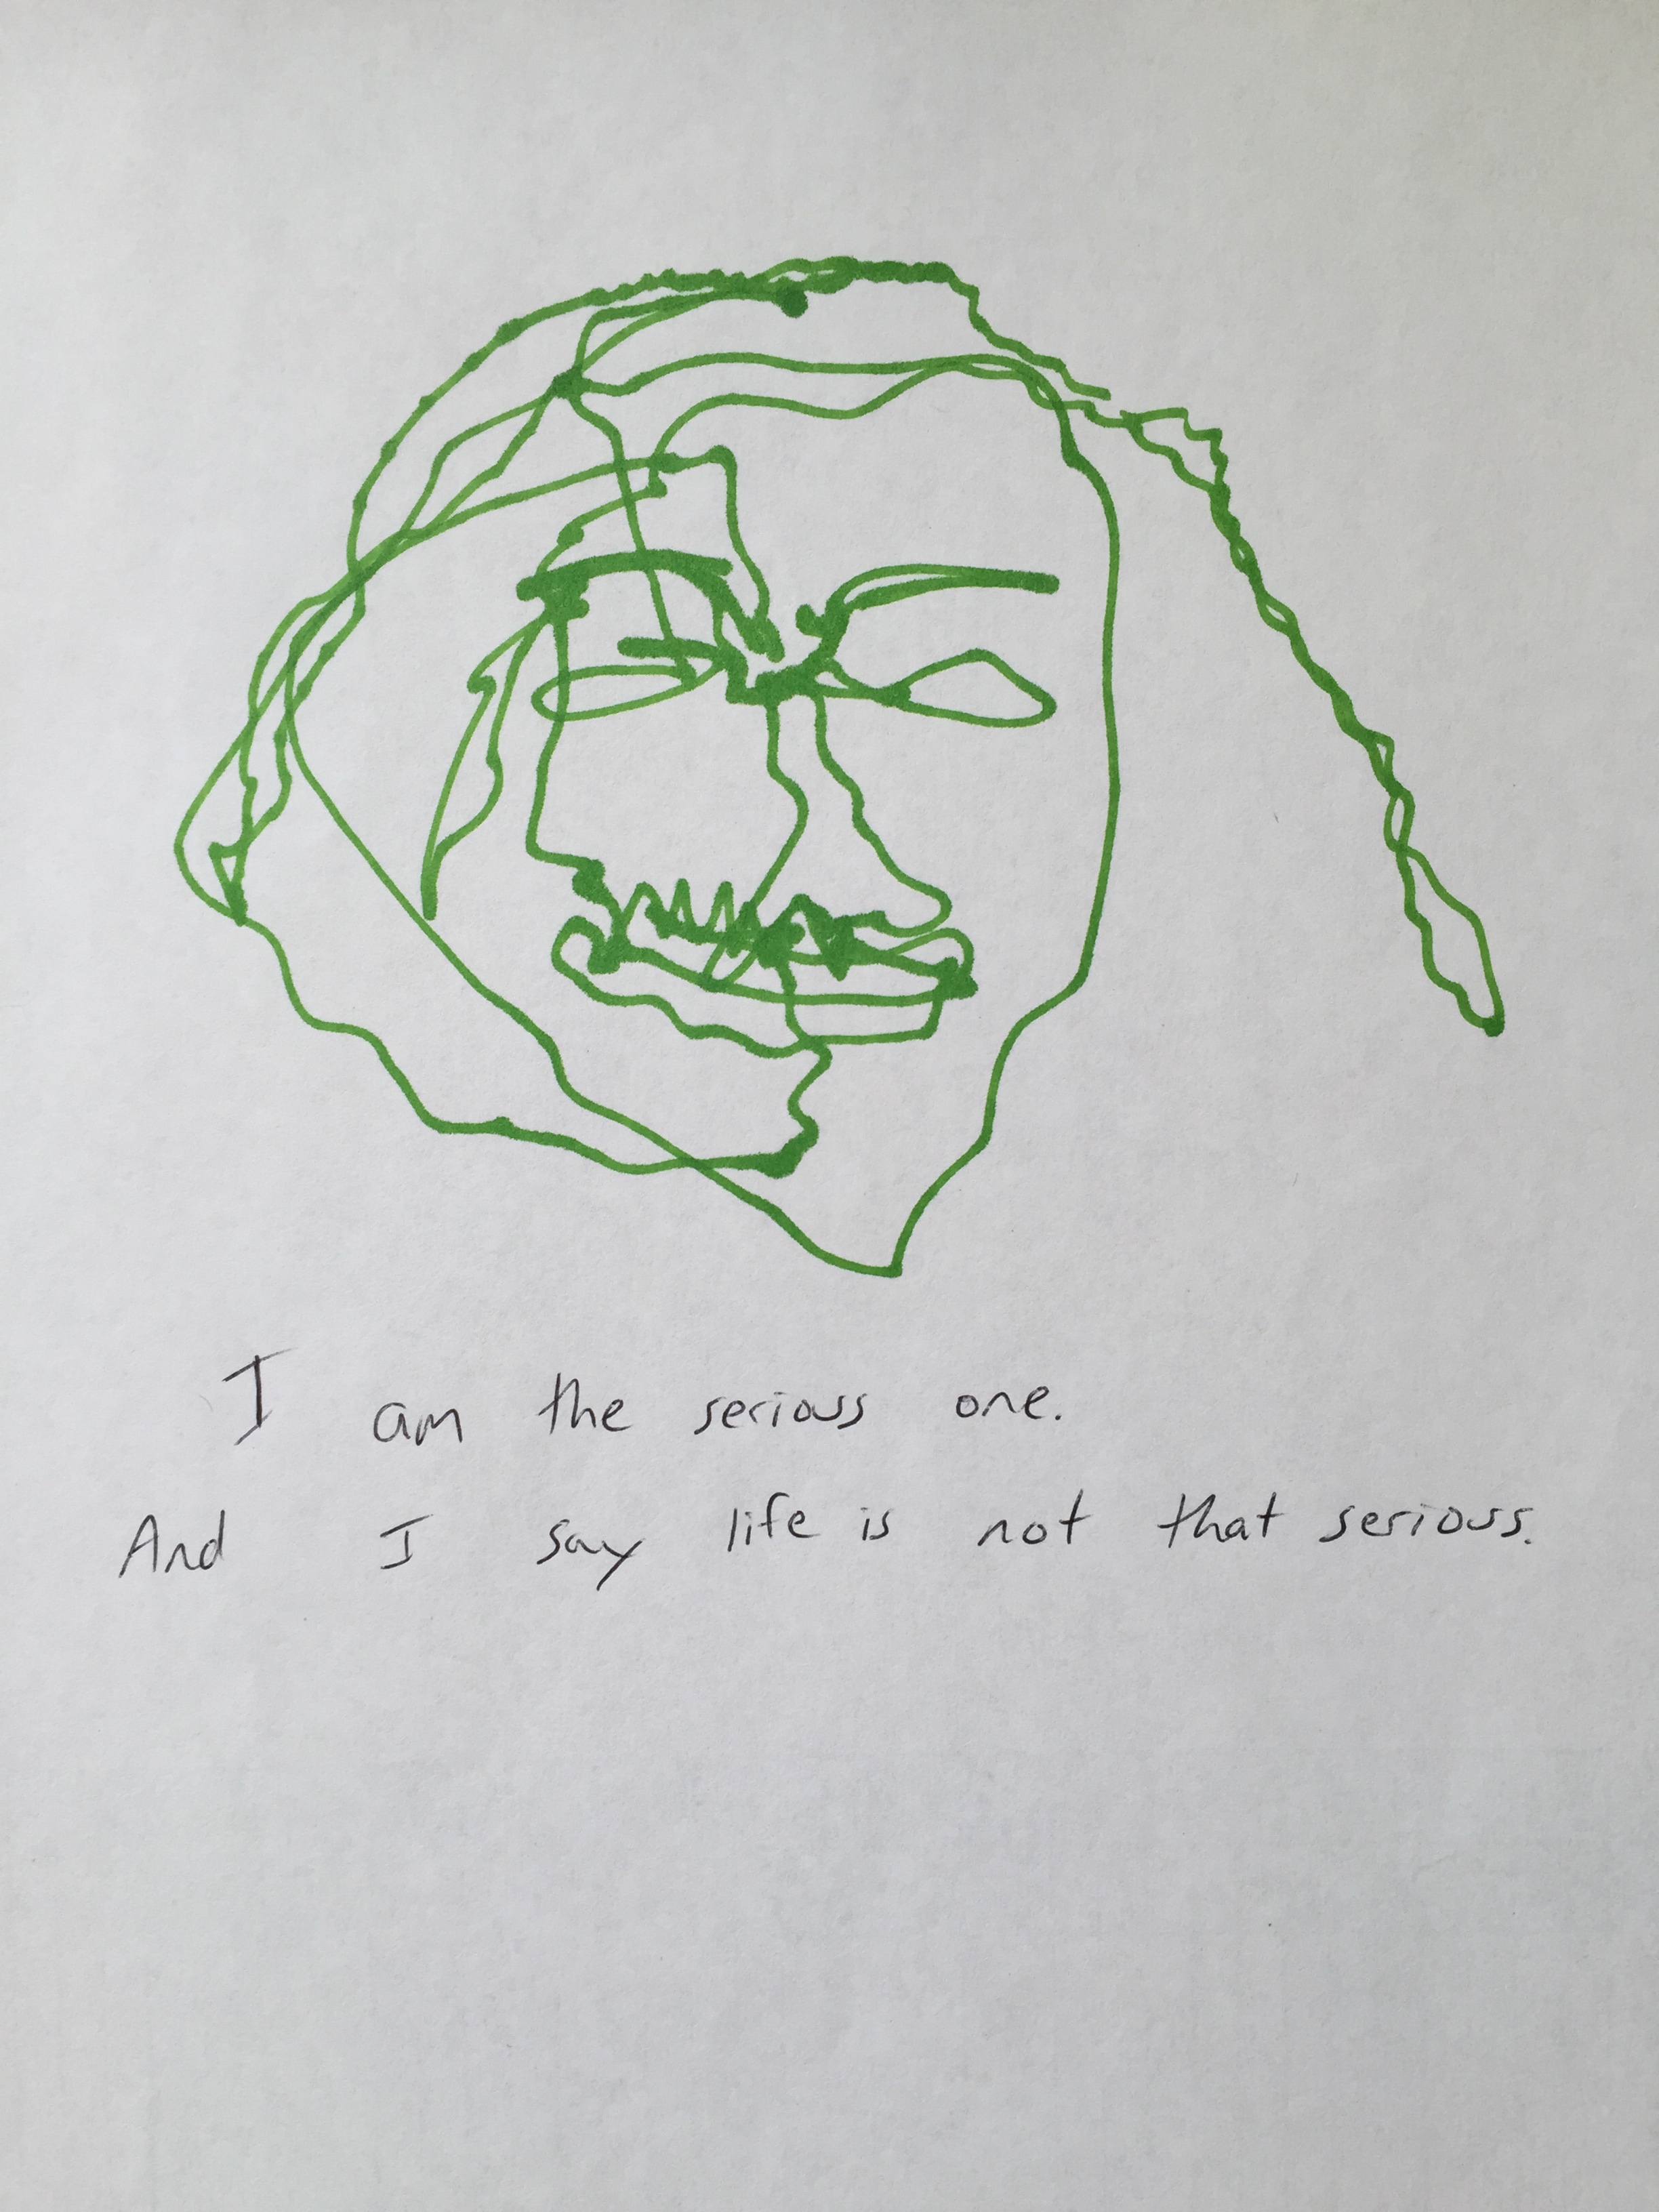 I am the serious one.
And I say life is not that serious.